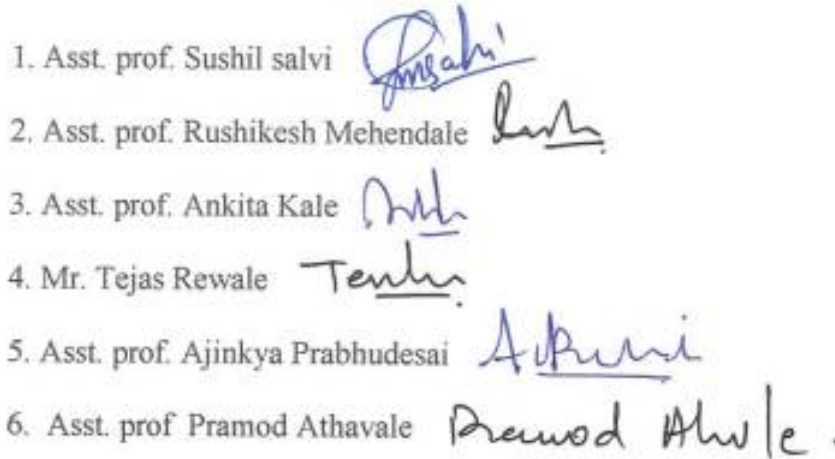 1. Asst. prof. Sushil salvi
2. Asst. prof. Rushikesh Mehendale
3. Asst. prof. Ankita Kale
4. Mr. Tejas Rewale
5. Asst. prof. Ajinkya Prabhudesai
6. Asst. prof Pramod Athavale Pramod